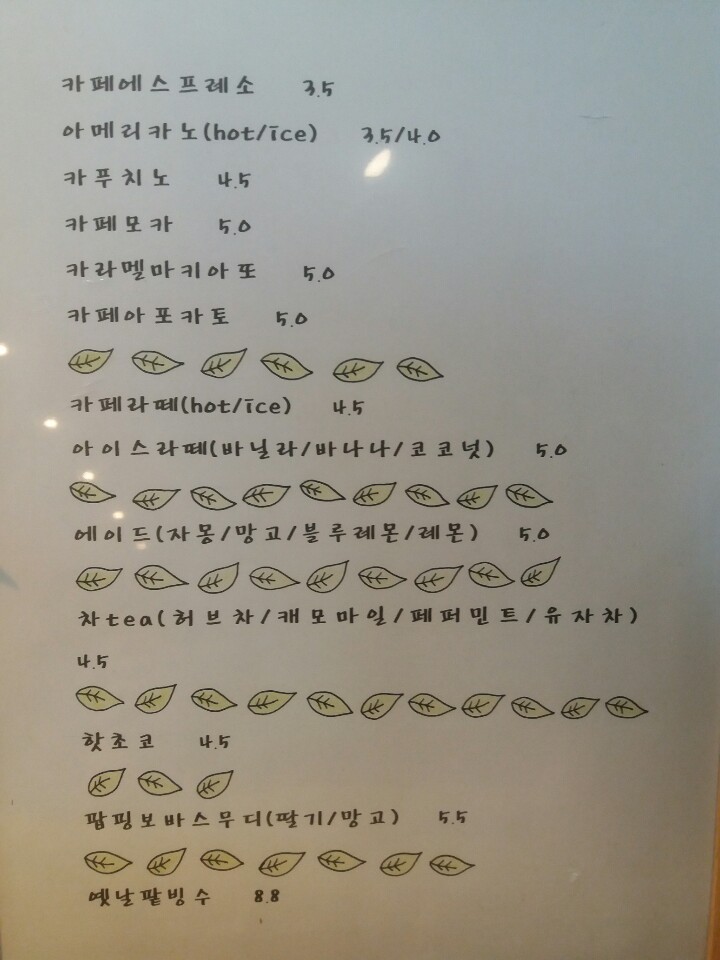 카페에스프레소 3.5
아메리카노(hot/ice) 3.5/4.0
카푸치노 4.5
카페모카 5.0
카라멜마키아또 5.0
카페아포카토 5.0
카페라떼(hot/ice) 4.5
아이스라떼(바닐라/바나나/코코넛) 5.0
에이드(자몽/망고/블루레몬/레몬) 5.0
차tea(허브차/캐모마일/페퍼민트/유자차)
4.5
핫초코 4.5
팝핑보바스무디(딸기/망고) 5.5
옛날팥빙수 8.8